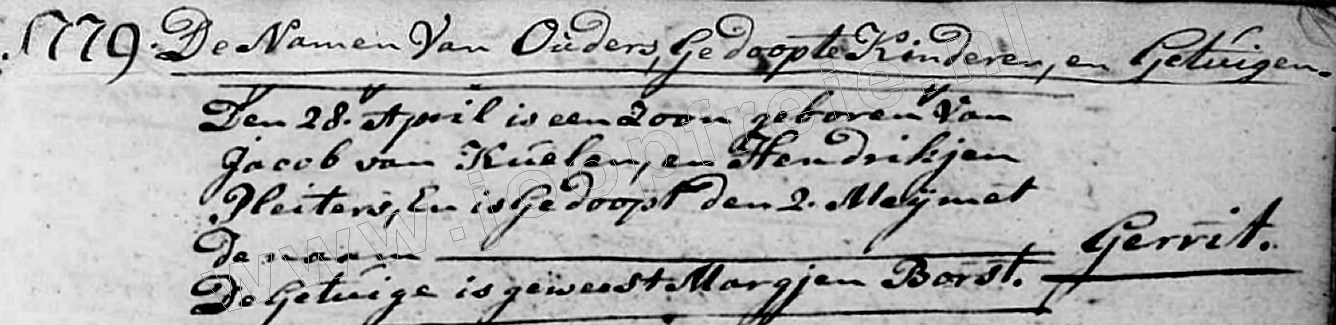 1779. De Namen Van Ouders, Gedoopte Kinderen, en Getuigen.
Den 28. April is een Zoon geboren Van
Jacob van Kuelen, en Hendrikjen
Pleiters, En is Gedoopt den 2. Meij met
de naam Gerrit.
De Getuige is geweest Margjen Borst.